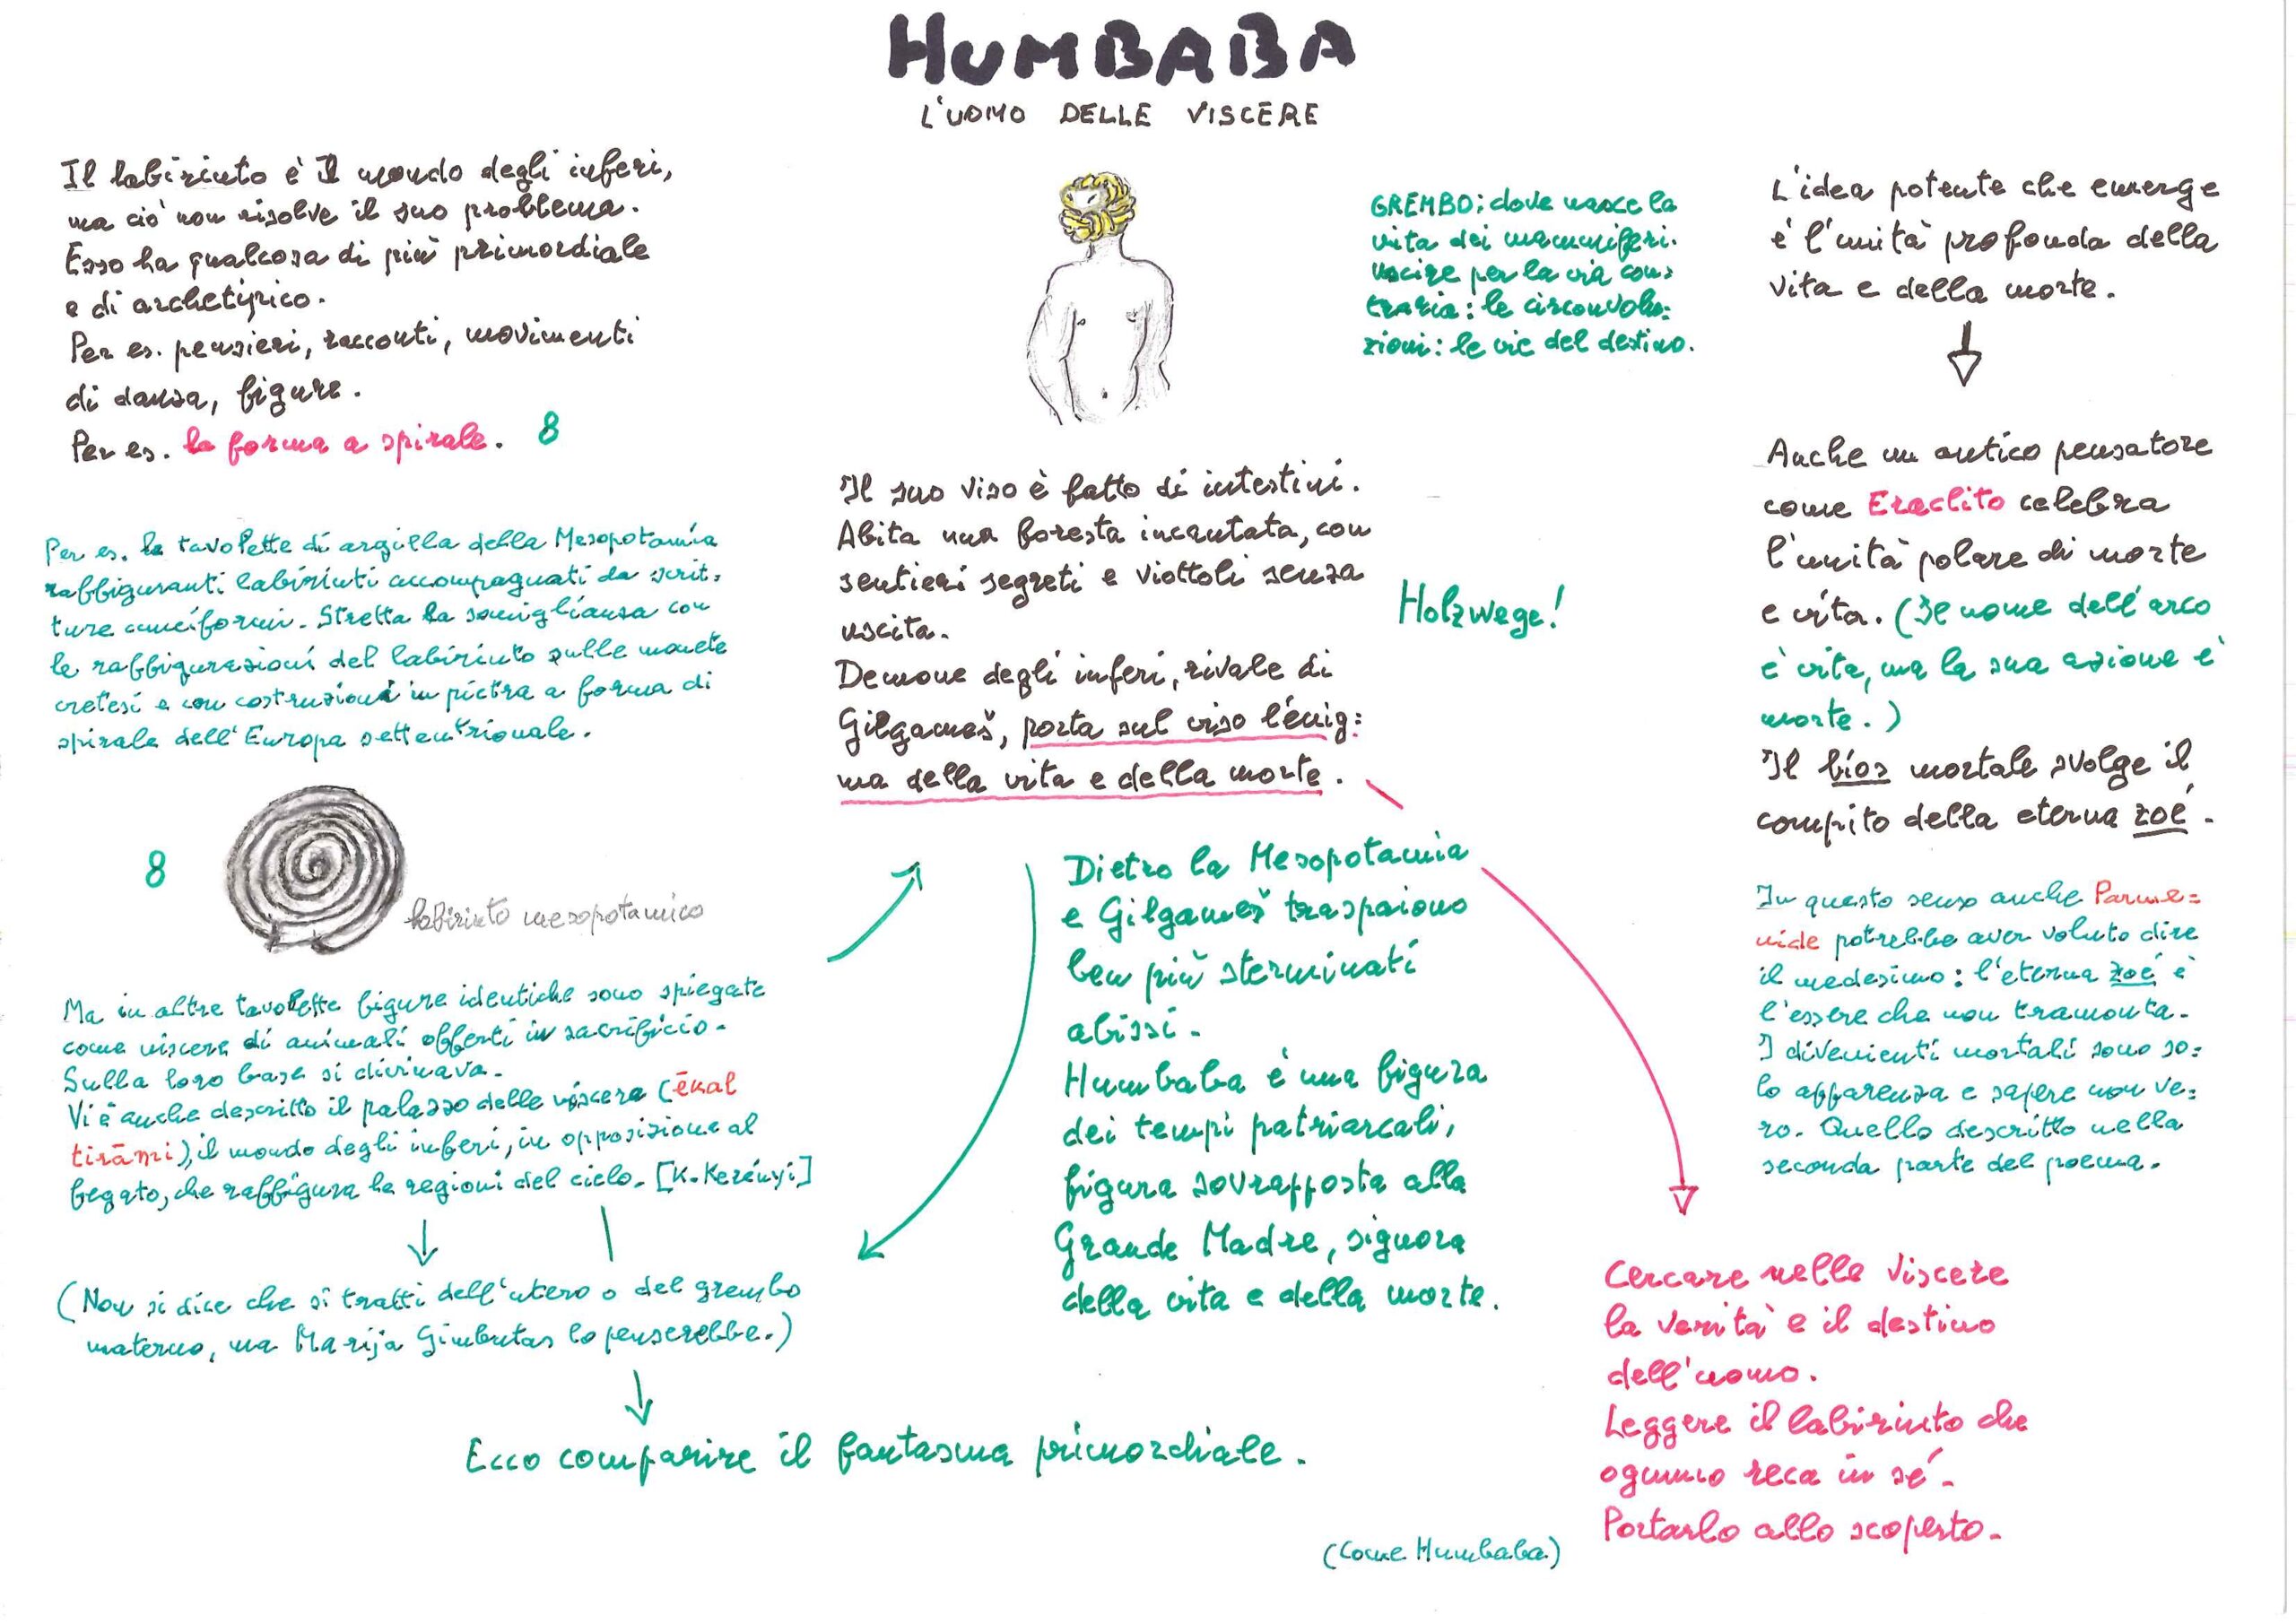 HUMBABA
L'UOMO DELLE VISCERE
Il labirinto è il mondo degli inferi,
ma ciò non risolve il suo problema.
Esso ha qualcosa di più primordiale
e di archetipico.
Per es. pensieri, racconti, movimenti
di danza, figure.
Per es. la forma a spirale. 8
Per es. le tavolette di argilla della Mesopotamia
raffiguranti labirinti accompagnati da scrit:
ture cuneiformi. Stretta la somiglianza con
le raffigurazioni del labirinto sulle monete
cretesi e con costruzioni in pietra a forma di
spirale dell'Europa settentrionale.
8
labirinto mesopotamico
Ma in altre tavolette figure identiche sono spiegate
come viscere di animali offerti in sacrificio.
Sulla loro base si divinava.
Vi è anche descritto il palazzo delle viscere (ēkal
tirāni), il mondo degli inferi, in opposizione al
fegato, che raffigura le regioni del cielo. [K. Kerényi]
(Non si dice che si tratti dell'utero o del grembo
materno, ma Marija Gimbutas lo penserebbe.)
Ecco comparire il fantasma primordiale.
Il suo viso è fatto di intestini.
Abita una foresta incantata, con
sentieri segreti e viottoli senza
uscita.
Demone degli inferi, rivale di
Gilgameš, porta sul viso l'enig:
ma della vita e della morte.
Holzwege!
Dietro la Mesopotamia
e Gilgameš traspaiono
ben più sterminati
abissi.
Humbaba è una figura
dei tempi patriarcali,
figura sovrapposta alla
Grande Madre, signora
della vita e della morte.
GREMBO: dove nasce la
vita dei mammiferi.
Uscire per la via con:
traria: le circonvolu:
zioni: le vie del destino.
L'idea potente che emerge
è l'unità profonda della
vita e della morte.
Anche un antico pensatore
come Eraclito celebra
l'unità polare di morte
e vita. (Il nome dell'arco
è vita, ma la sua azione è
morte.)
Il bíos mortale svolge il
compito della eterna zoé.
In questo senso anche Parme=
nide potrebbe aver voluto dire
il medesimo: l'eterna zoé è
l'essere che non tramonta.
I divenienti mortali sono so:
lo apparenza e sapere non ve:
ro. Quello descritto nella
seconda parte del poema.
Cercare nelle viscere
la verità e il destino
dell'uomo.
Leggere il labirinto che
ognuno reca in sé.
Portarlo allo scoperto.
(Come Humbaba)